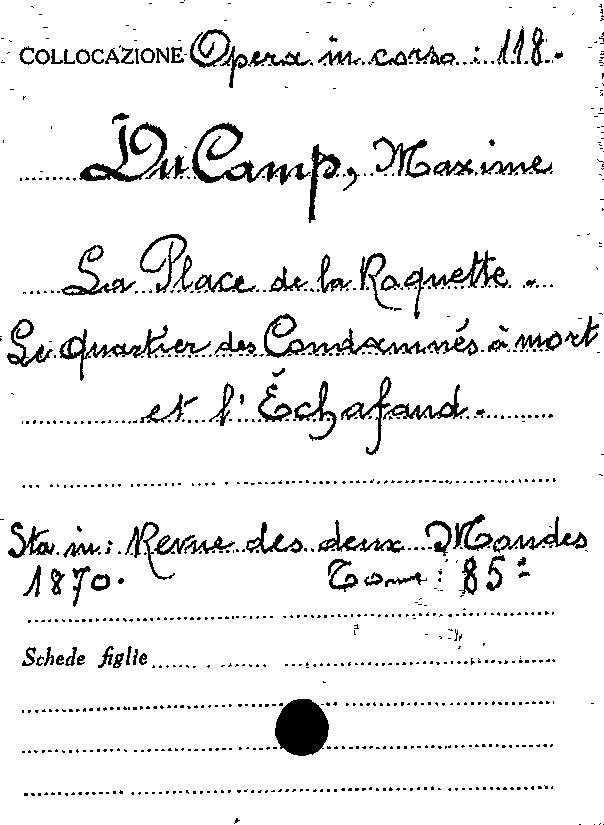 COLLOCAZIONE Opera in corso : 118.
Du Camp, Maxime
La Place de la Roquette.
Le Quartier des Condamnés à mort
et l'Échafaud.
Sta in: Revue des deux Mondes
1870. Tome: 85º
Schede figlie